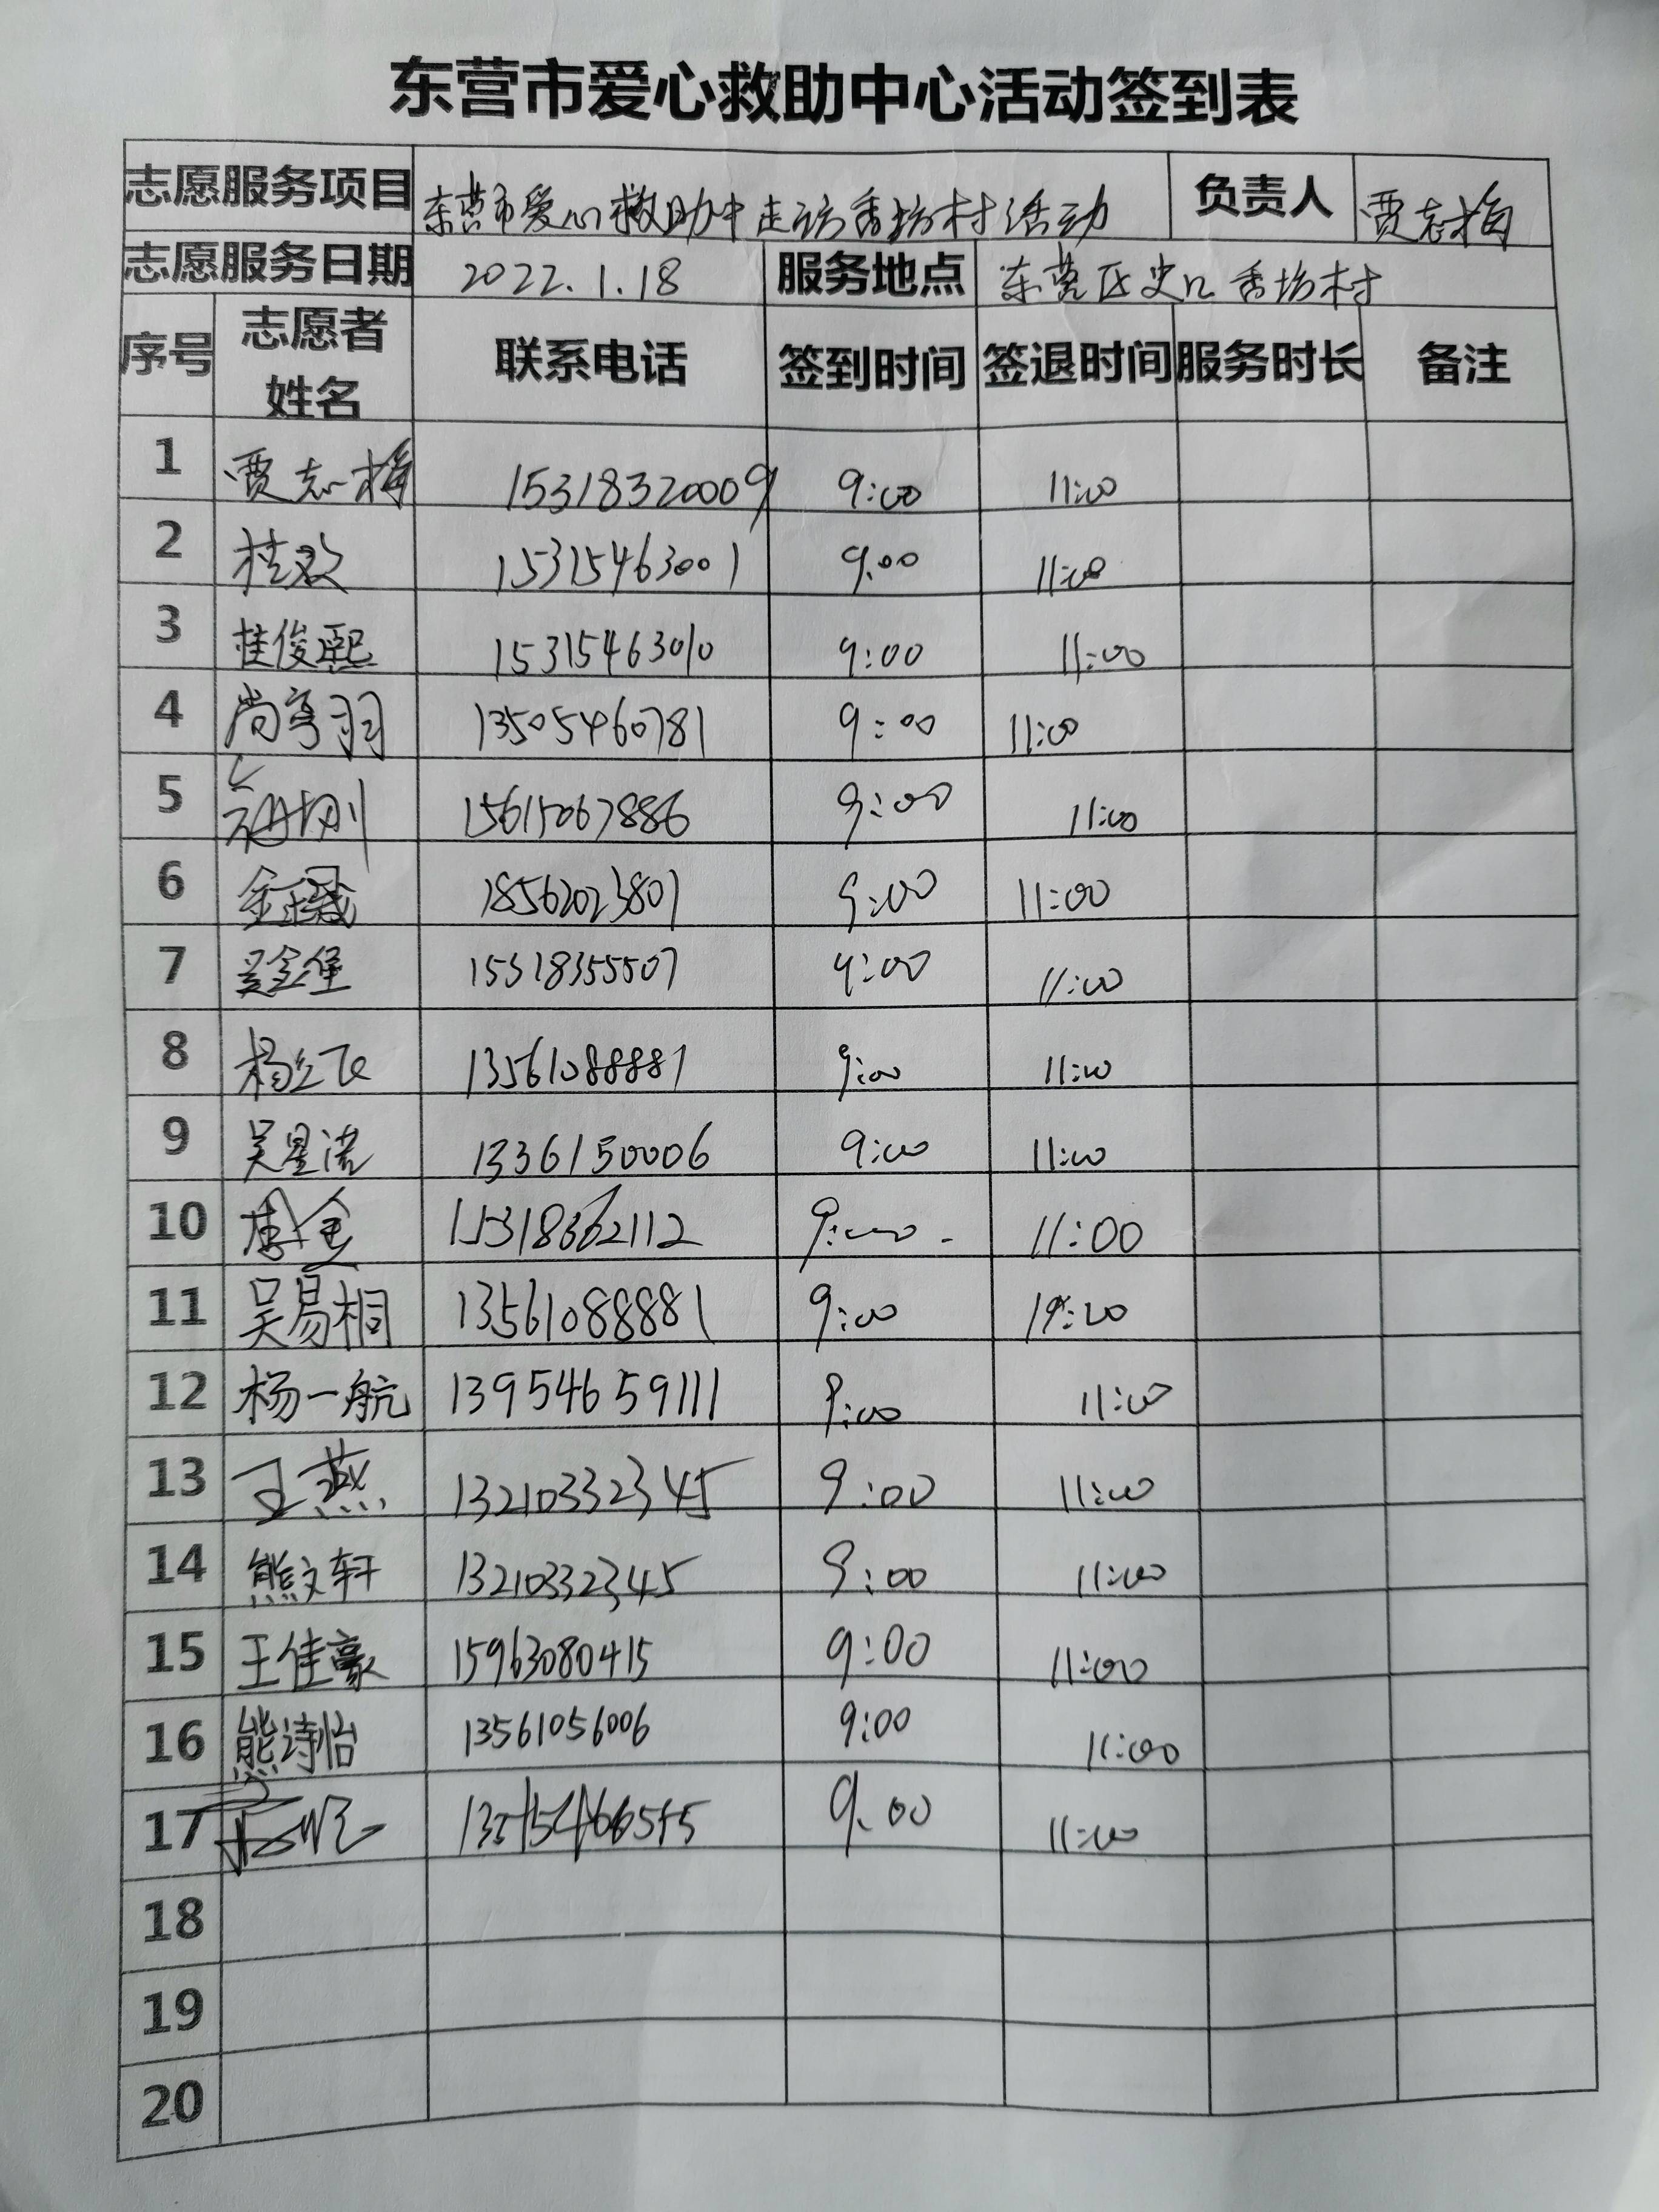 东营市爱心救助中心活动签到表
志愿服务项目 东营市爱心救助中走访香坊村活动 负责人 贾志梅
志愿服务日期 2022.1.18 服务地点 东营区史口香坊村
序号 志愿者姓名 联系电话 签到时间 签退时间 服务时长 备注
1 贾志梅 15318320009 9:00 11:00
2 桂双 15315463001 9:00 11:00
3 桂俊熙 15315463010 9:00 11:00
4 尚亭羽 13505460781 9:00 11:00
5 15615067886 9:00 11:00
6 18562023801 9:00 11:00
7 吴金堡 15318355507 9:00 11:00
8 13561088881 9:00 11:00
9 吴星浩 13361150006 9:00 11:00
10 15318362112 9:00 11:00
11 吴易桐 13561088881 9:00
12 杨一航 13954659111 9:00 11:00
13 王燕 13210332345 9:00 11:00
14 熊文轩 13210332345 9:00 11:00
15 王佳豪 15963080415 9:00 11:00
16 熊诗怡 13561056006 9:00 11:00
17 9.00 11:00
18
19
20